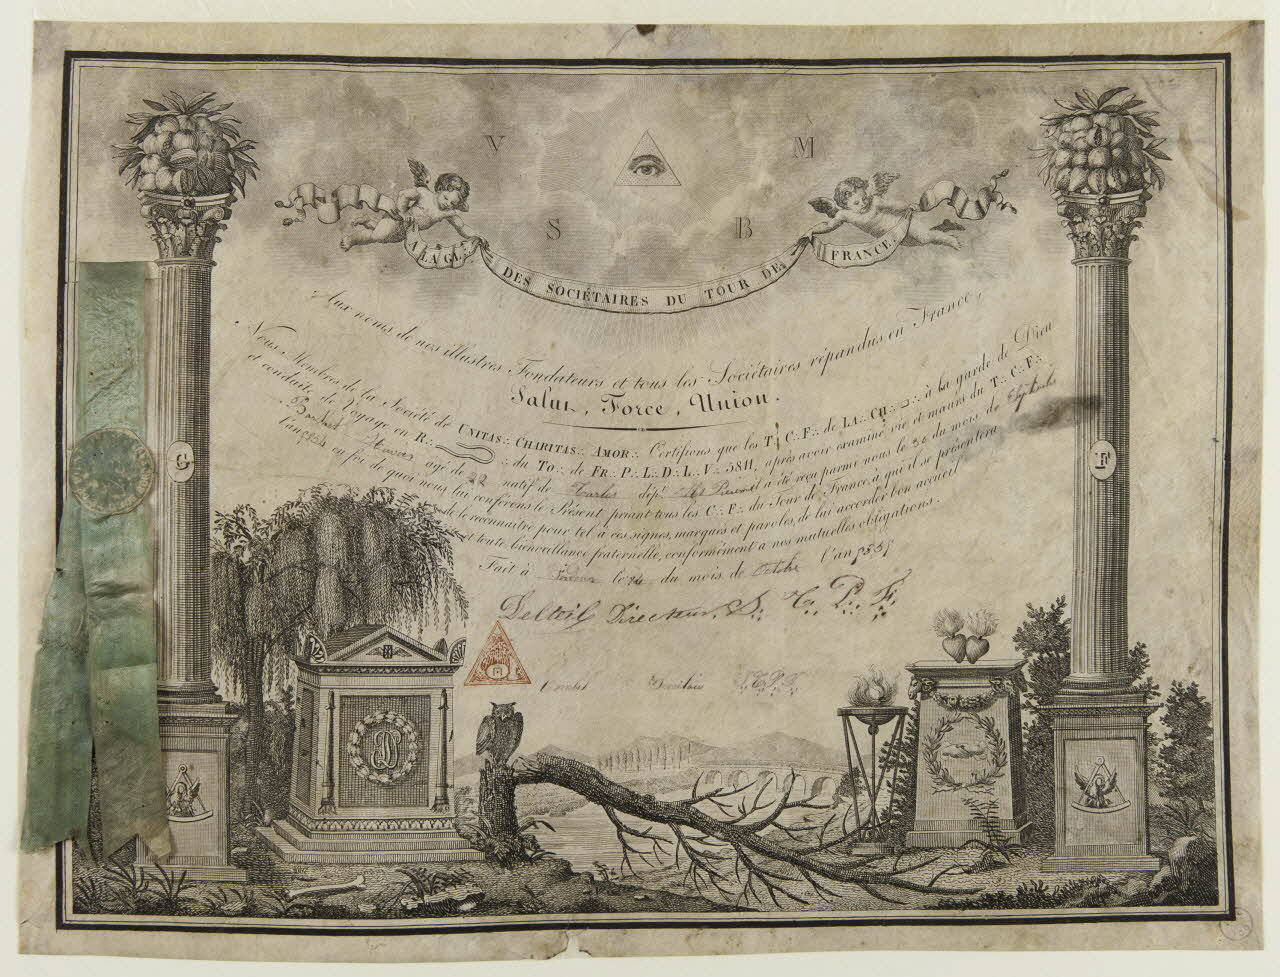 V M
S B
A LA GL∴ DES SOCIÉTAIRES DU TOUR DE FRANCE
Aux noms de nos illustres Fondateurs et tous les Sociétaires répandus en France,
Salut, Force, Union.
Nous Membres de la Société de UNITAS∴ CHARITAS∴ AMOR∴ Certifions que les T∴ C∴ F∴ de LA∴ CH∴ ▭∴ à la garde de Dieu
et conduite de Voyage en R∴ du TO∴ de FR∴ P∴ L∴ D∴ L∴ V∴ 5811, après avoir examiné vie et mœurs du T∴ C∴ F∴
âgé de 22 natif de Tarbes dépt. a été reçu parmi nous le du mois de
l'an en foi de quoi nous lui conférons le Présent priant tous les C∴ F∴ du Tour de France, à qui il se présentera
de le reconnaître pour tel à ces signes, marques et paroles, de lui accorder bon accueil
et toute bienveillance fraternelle, conformément a nos mutuelles obligations.
Fait à le 24 du mois de Octobre l'an
Directeur D∴ T∴ C∴ P∴ F∴
G
F